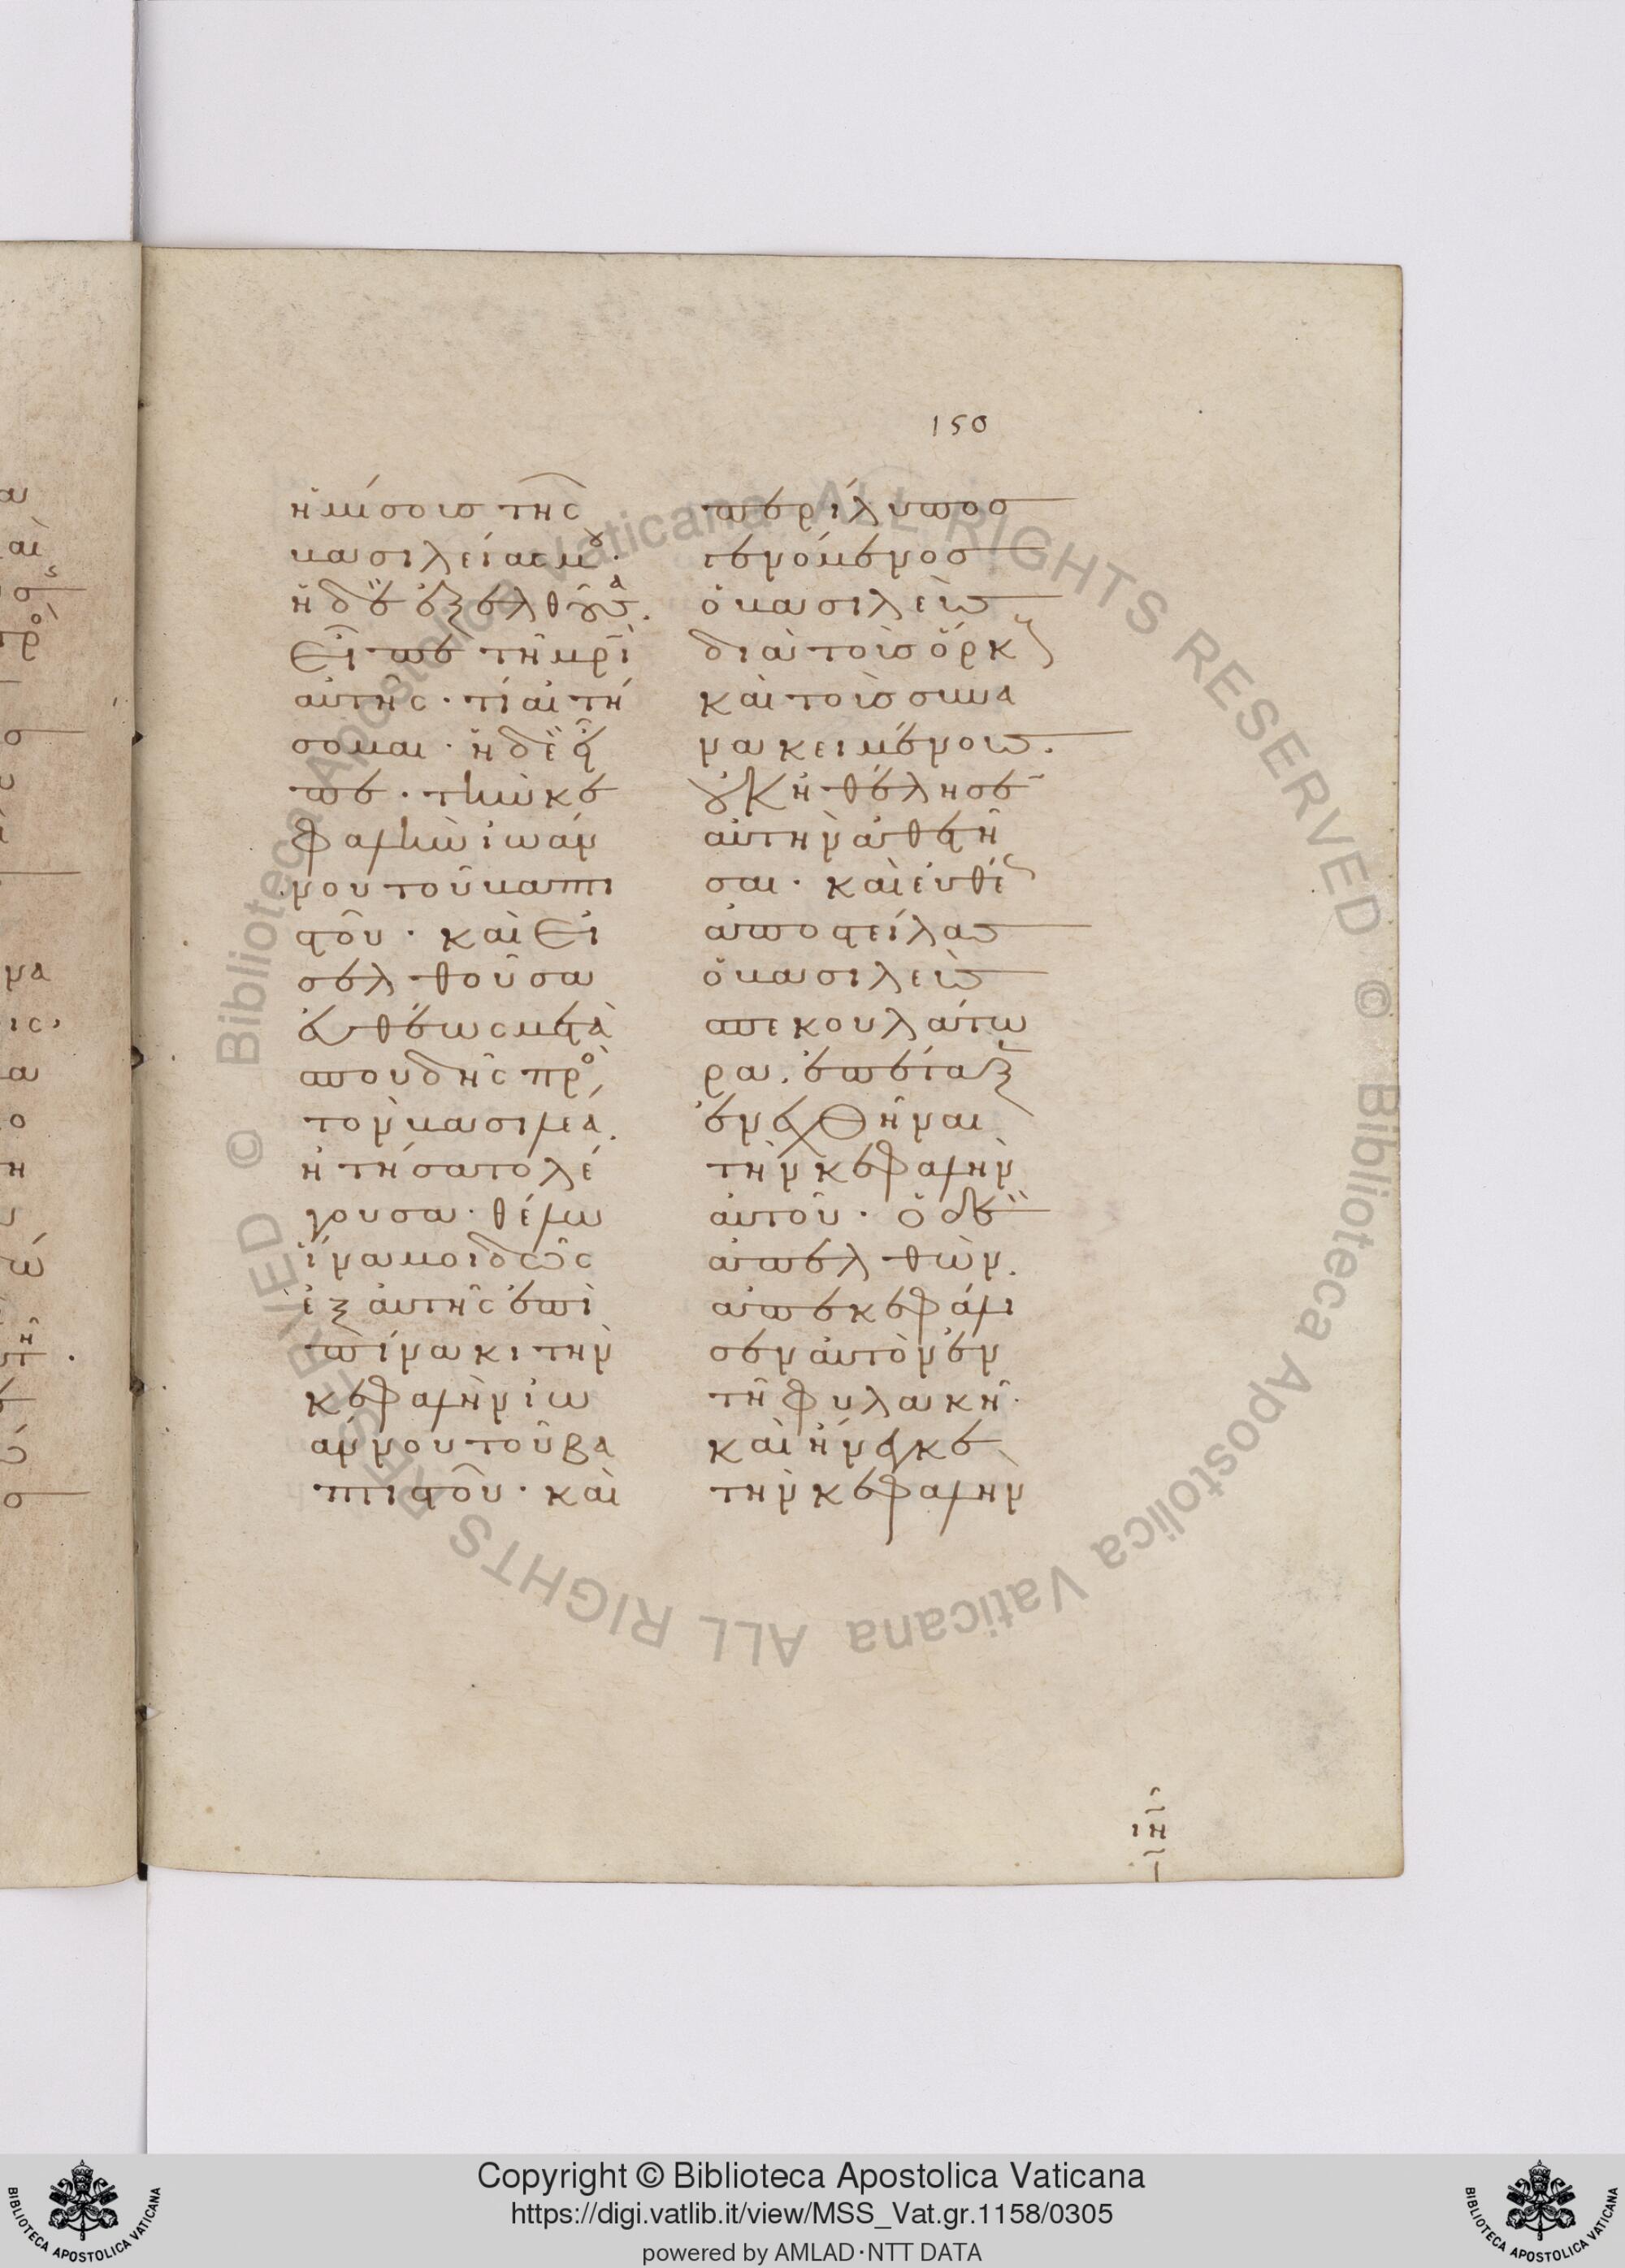 150
ἡμίσους τῆς
βασιλείας μου·
ἡ δὲ ἐξελθοῦσα.
εἶπε τῇ μρὶ
αὐτῆς· τί αἰτή
σομαι· ἡ δὲ εἶ
πε· τὴν κε
φαλὴν ἰωάν
νου τοῦ βαπτι
στοῦ· καὶ εἰ
σελθοῦσα
εὐθέως μετὰ
σπουδῆς πρὸς
τὸν βασιλέα.
ἠτήσατο λέ
γουσα· θέλω
ἵνα μοι δῶς
ἐξ αὐτῆς ἐπὶ
πίνακι τὴν
κεφαλὴν ἰω
άννου τοῦ βα
πτιστοῦ· καὶ
περίλυπος
γενόμενος
ὁ βασιλεὺς
διὰ τοὺς ὅρκους
καὶ τοὺς συνα
νακειμένους.
οὐκ ἠθέλησεν
αὐτὴν ἀθετῆ
σαι· καὶ εὐθέως
ἀποστείλας
ὁ βασιλεὺς
σπεκουλάτω
ρα. ἐπέταξεν
ἐνεχθῆναι
τὴν κεφαλὴν
αὐτοῦ· ὁ δὲ
ἀπελθὼν.
ἀπεκεφάλι
σεν αὐτὸν ἐν
τῇ φυλακῇ·
καὶ ἤνεγκε
τὴν κεφαλὴν
Copyright © Biblioteca Apostolica Vaticana
https://digi.vatlib.it/view/MSS_Vat.gr.1158/0305
powered by AMLAD·NTT DATA
BIBLIOTECA APOSTOLICA VATICANA
BIBLIOTECA APOSTOLICA VATICANA
© Biblioteca Apostolica Vaticana ALL RIGHTS RESERVED © Biblioteca Apostolica Vaticana ALL RIGHTS RESERVED